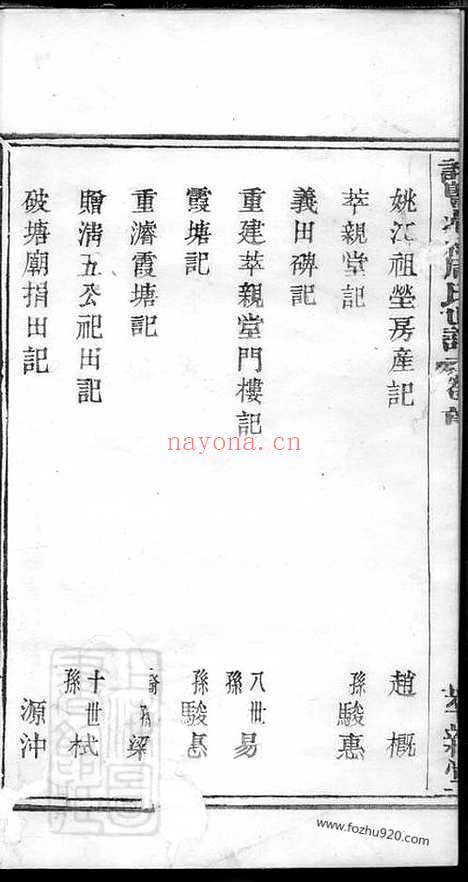 姚江祖塋房產記 趙概
萃親堂記 孫駿惠
義田碑記
重建萃親堂門樓記 八世孫易
霞塘記 孫駿惠
重濬霞塘記 裔孫梁
贈清五公祀田記 十世孫栻
破塘廟捐田記 源沖
nayona.cn
www.fozhu920.com